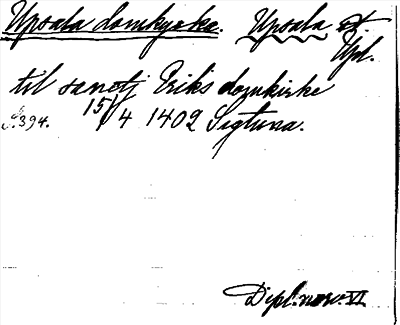 Upsala domkyrka. Upsala st
Upl.
til sanctj Eriks domkirke
s. 394. 15/4 1402 Sigtuna.
Dipl. norv. VI